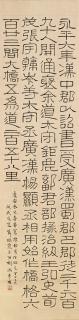 永平六年漢中郡以詔書受廣漢蜀郡巴郡徒二千六百
九十人開通褒余道太守鉅鹿鄐君部掾治級王弘史荀
茂張宇韓岑等典功作太守丞廣漢楊顯將相用始作橋格六
百二三間大橋五為道二百五十八里